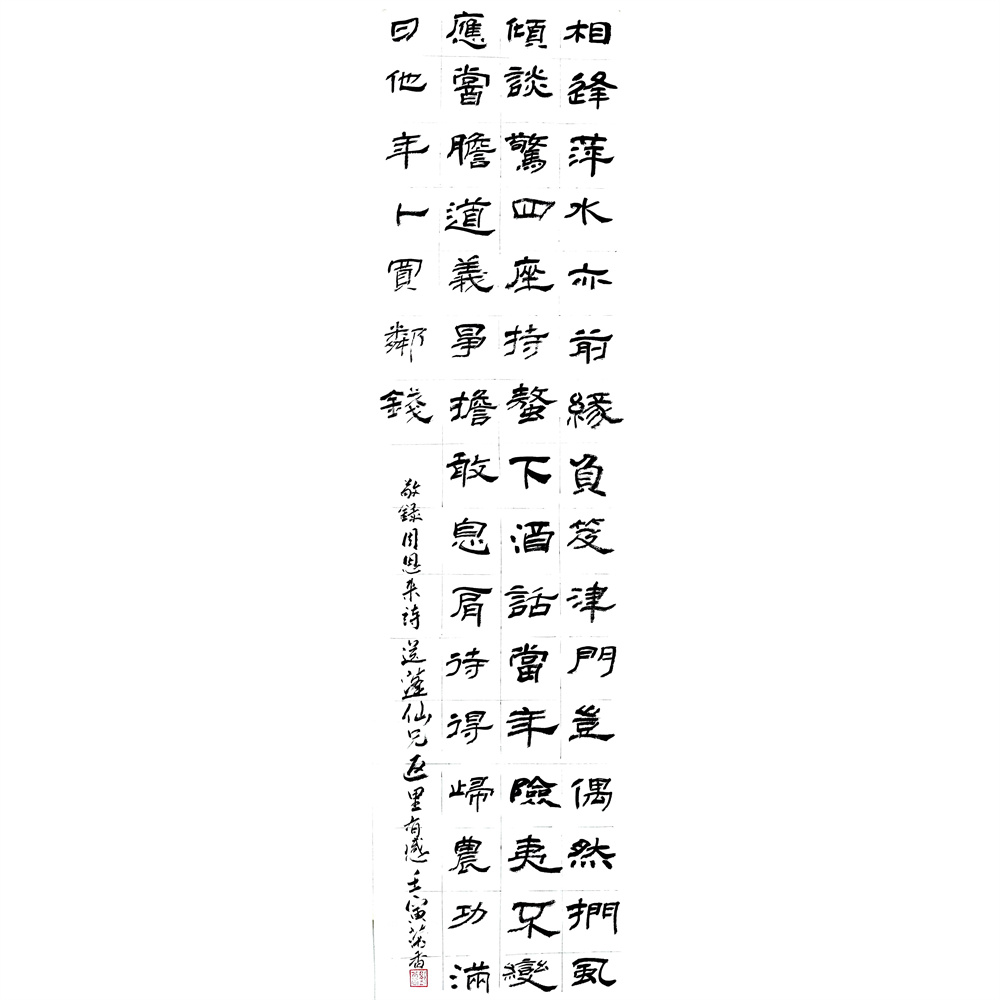 相逢萍水亦前緣負笈津門豈偶然捫虱
傾談驚四座持螯下酒話當年險夷不變
應嘗膽道義爭擔敢息肩待得歸農功滿
日他年卜買鄰錢
敬錄周恩來詩送蓬仙兄返里有感壬寅荣香